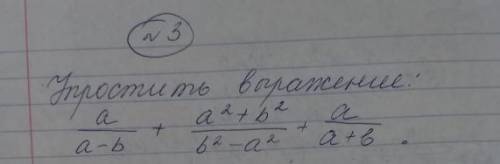 №3
Упростить выражение:
a/(a-b) + (a²+b²)/(b²-a²) + a/(a+b).